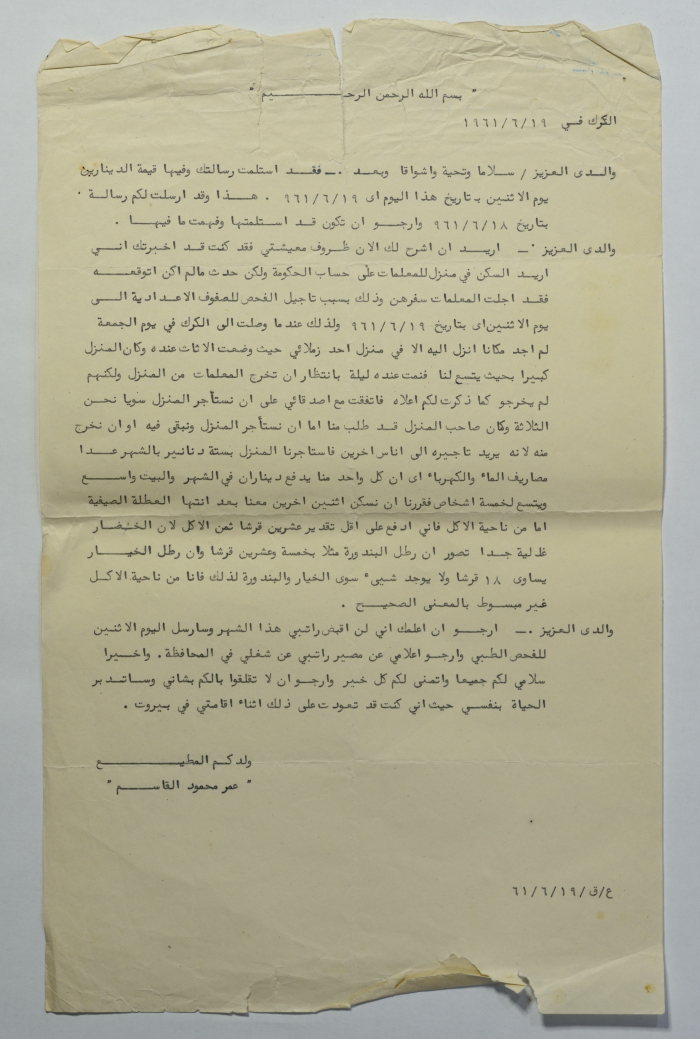 " بسم الله الرحمن الرحـــــــيم "
الكرك فــي ١٩٦١/٦/١٩
والدى العـزيز / سـلاما وتحية واشواقا وبعـد ٠ـ فقـد استلمت رسالتك وفيها قيمة الدينارين
يوم الاثنـين بـتاريخ هذا اليوم اى ٩٦١/٦/١٩ ٠ هـذا وقد ارسلت لكم رسالة ٠
بتاريخ ٩٦١/٦/١٨ وارجـو ان تكون قـد استلمتها وفهمت ما فيهـا ٠
والدى العزيز ٠ـ اريـد ان اشرح لك الان ظـروف معيشتي فقد كنت قـد اخبرتك انـي
اريد السكن في منزل للمعلمات على حساب الحكومة ولكن حدث مالم اكن اتوقعـه
فقـد اجلت المعلمات سفرهن وذلك بسبب تاجيل الفحص للصفوف الاعدادية الـى
يوم الاثنين اى بتاريخ ٩٦١/٦/١٩ ولذلك عندما وصلت الى الكرك في يوم الجمعة
لم اجد مكانا انزل اليه الا في منزل احد زملائي حيث وضعت الاثاث عنده وكان المنزل
كبيرا بحيث يتسع لنا فنمت عنده ليلة بانتظار ان تخرج المعلمات من المنزل ولكنهم
لم يخرجو كما ذكرت لكم اعلاه فاتفقت مع اصدقائي على ان نستأجر المنزل سويا نحـن
الثلاثة وكان صاحب المنزل قـد طلب منا اما ان نستأجر المنزل ونبقى فيه او ان نخرج
منه لانه يريد تاجيره الى اناس اخرين فاستاجرنا المنزل بستة دنانـير بالشهر عـدا
مصاريف الماء والكهرباء اى ان كل واحد منا يدفع ديناران في الشهر والبيت واسـع
ويتسع لخمسة اشخاص فقررنا ان نسكن اثنين اخرين معنا بعد انتها العطلة الصيفية
اما من ناحية الاكل فاني ادفع على اقل تقدير عشرين قرشا ثمن الاكل لان الخـضار
غـالية جـدا تصور ان رطل البندورة مثلا بخمسة وعشرين قرشا وان رطل الخيـار
يساوى ١٨ قرشا ولا يوجد شيىء سوى الخيار والبندورة لذلك فانا من ناحية الاكـل
غير مبسـوط بالمعنى الصحيـح ٠
والدى العـزيز ٠ـ ارجـو ان اعلمك اني لن اقبض راتبي هذا الشهر وسارسل اليوم الاثنـين
للفحص الطبي وارجو اعلامي عن مصير راتبي عن شغلي في المحافظة ٠ واخـيرا
سلامي لكم جميعا واتمنى لكم كل خير وارجو ان لا تقلقوا بالكم بشاني وسـاتدبر
الحياة بنفسي حيث اني كنت قد تعودت على ذلك اثناء اقامتي في بيروت ٠
ولدكـم المطيـــــــع
" عمر محمود القاســـم "
ع/ق/٦١/٦/١٩